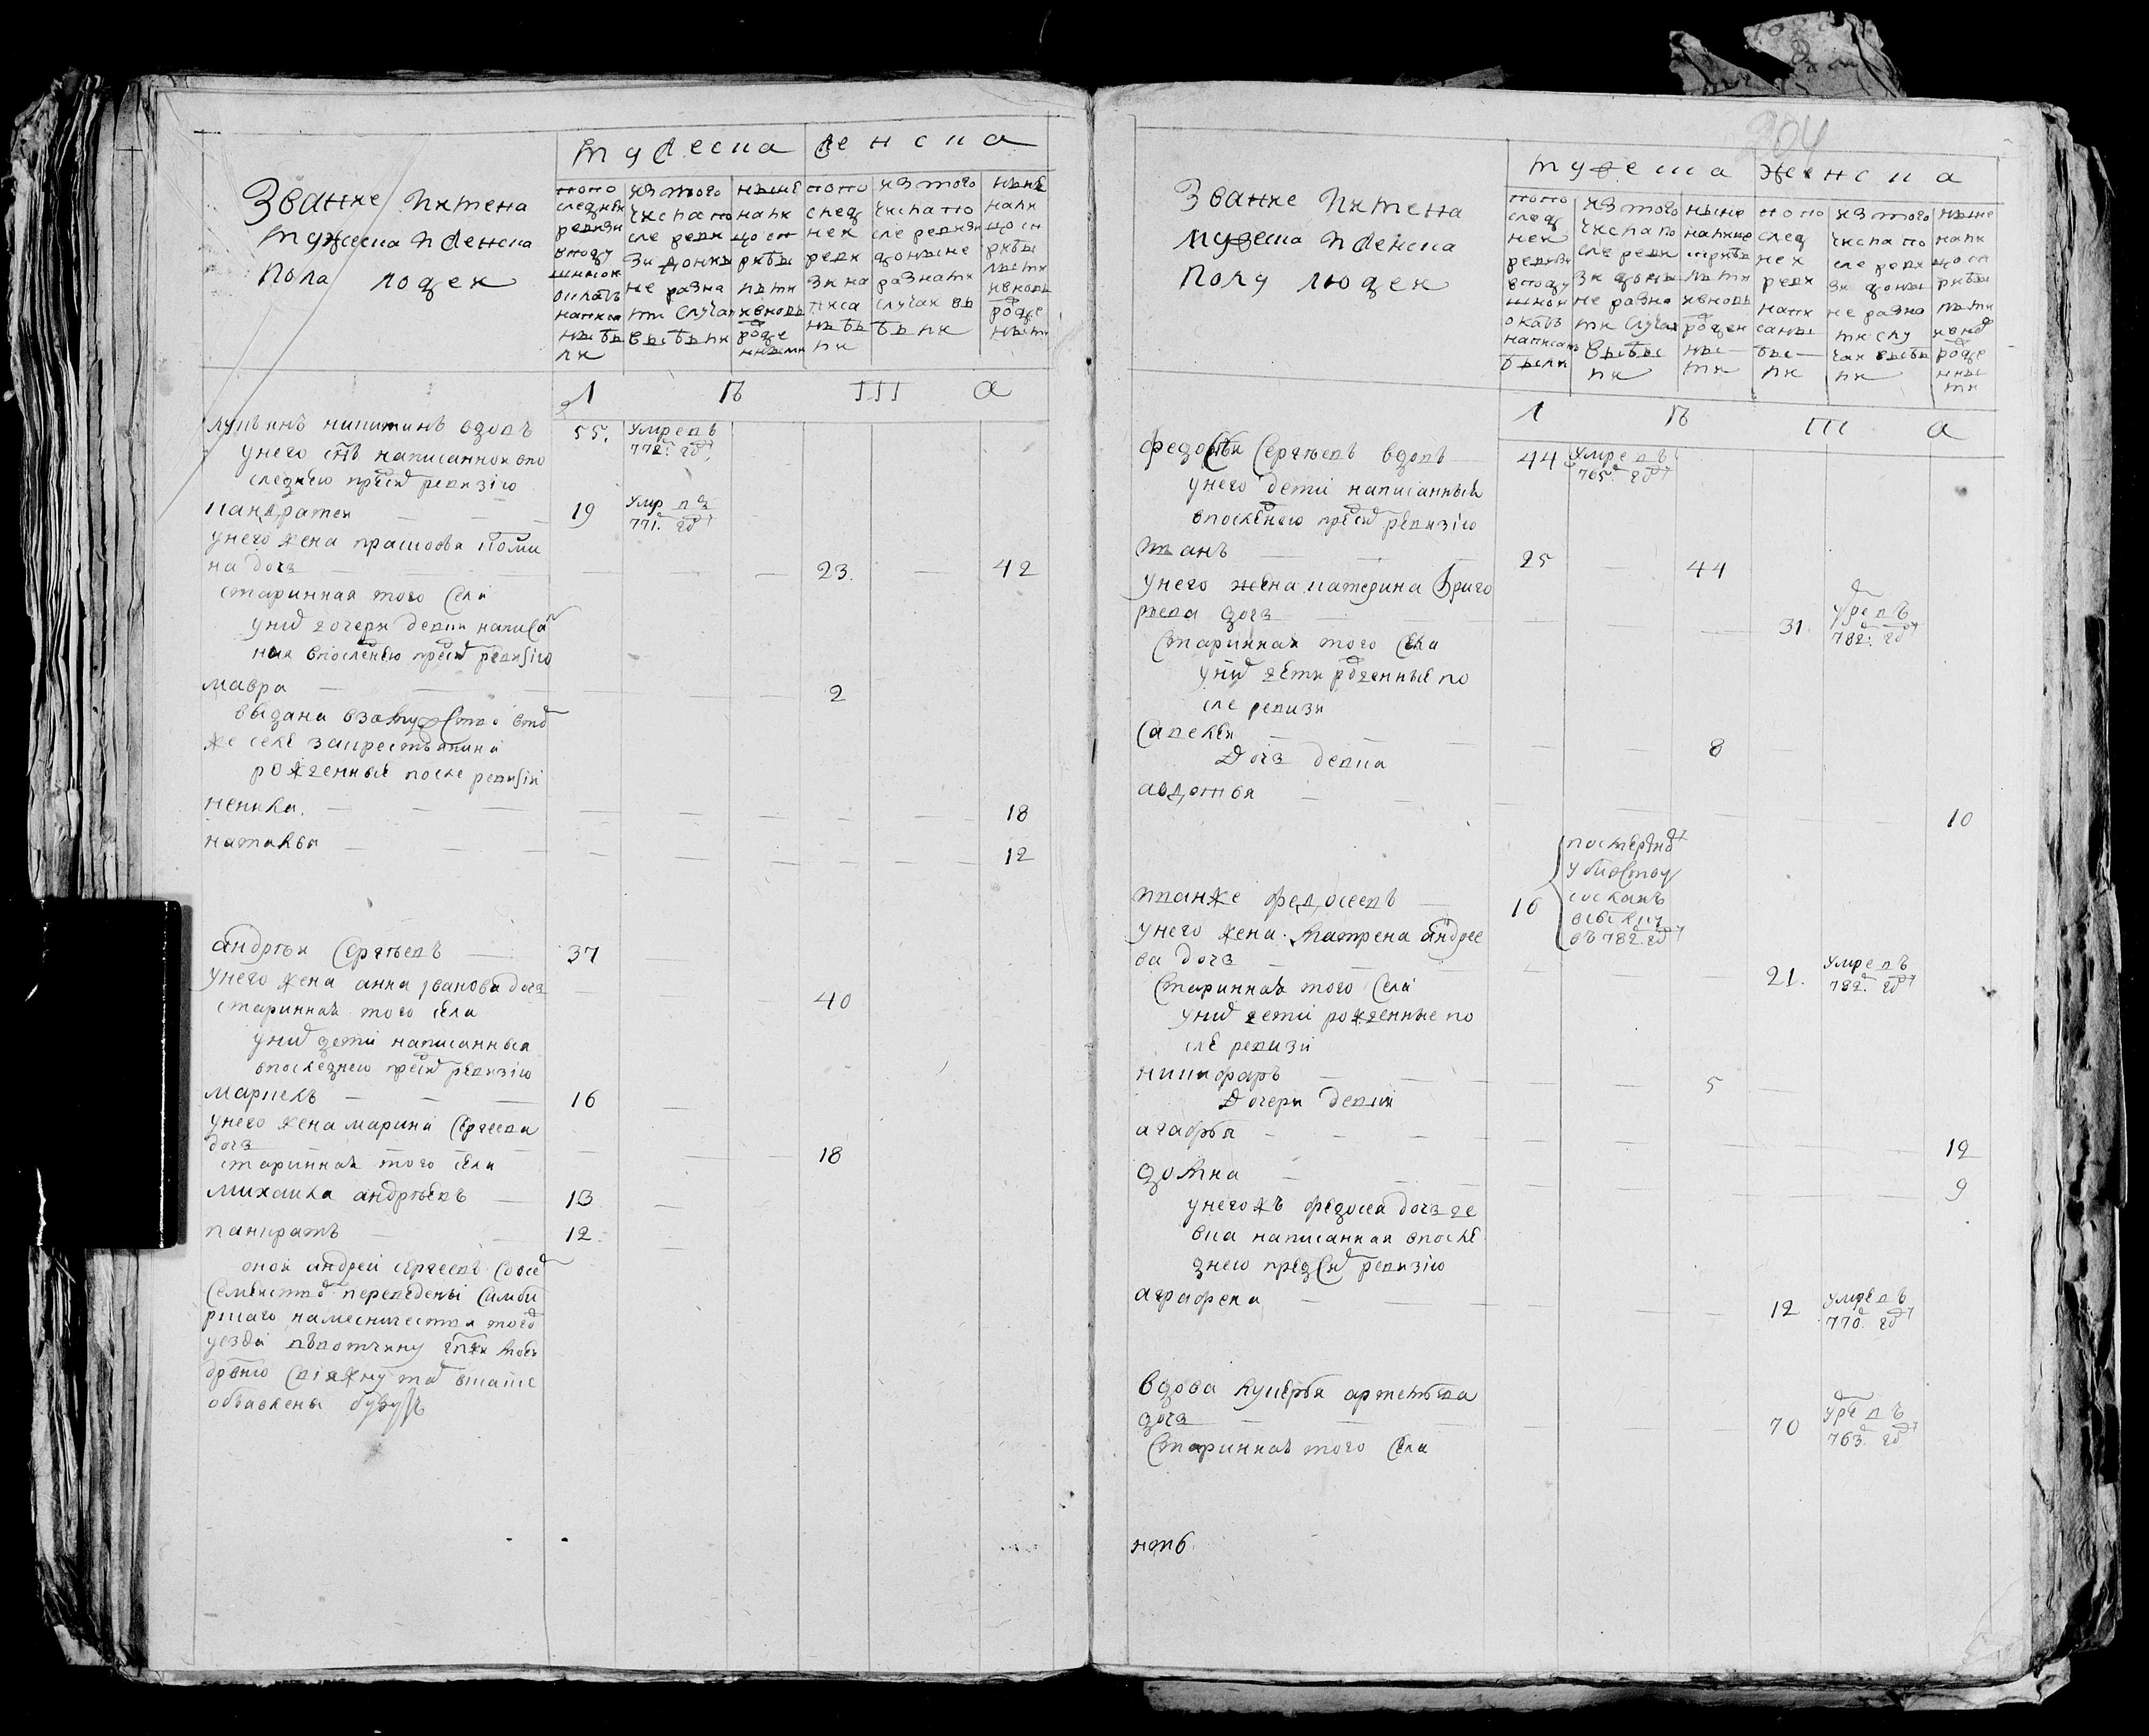 Звание и имена
мужеска и женска
пола людей
мужеска женска
по по
следней
ревизи
в подушной
окладъ
написа
ны бы
ли
из того
числа по
сле реви
зи до ны
не разны
ми случаи
выбыли
ныне
нали
цо ст
рыбы
лыми
и вновь
рожде
нными
по по
след
ней
реви
зи на
писа
ны бы
ли
из того
числа по
сле ревизи
до ныне
разными
случаи вы
были
ныне
нали
цо с п
рибы
лыми
и вновь
рожде
ными
1 П III а
лукьянъ никитинъ вдовъ 55. умре въ
772: год
у него сынъ написанной впо
следнею пред ревизию
кандратей 19 умр въ
771: год
у него жена прасковья коми
на дочь 23. 42
старинная того села
у них дочери девки написан
ная в последнею пред ревизию
мавра 2
выдана в замужство в том
же селе за крестьянина
рожденные после ревизии
ненила. 18
наталья 12
андрей сергѣевъ 37
у него жена анна иванова дочь 40
старинная того села
у них дети написанныя
в последнею пред ревизию
маркелъ 16
у него жена марина сергеева
дочь 18
старинная того села
михаила андрѣевъ 13
панкратъ 12
оной андрей сергеевъ со всем
семейством переведены симби
рскаго наместничества того
уезда въ вотчину
объявлены будутъ
204
Звание и имена
мужеска и женска
полу людей
мужеска женска
по по
след
ней
ревизи
в поду
шной
окладъ
написаны
были
из того
числа по
сле реви
зи до ны
не разны
ми случаи
выбы
ли
ныне
налицо
с прибы
лыми
и вновь
рожден
ны
ми
по по
след
ней
реви
зи
напи
саны
бы
ли
из того
числа по
сле реви
зи до ны
не разны
ми слу
чаи выбы
ли
ныне
нали
цо с п
рибы
лыми
и внов
рожде
нны
ми
1 П III а
федосей сергѣевъ вдовъ 44 умре въ
765: год
у него дети написанный
в последнею пред ревизию
иванъ 25 44
у него жена катерина григо
рьева дочь 31 умре въ
782: год
старинная того села
у них дети рожденные по
сле ревизи
савелей 8
дочь девка
авдотья 10
иван же федосеевъ 16 по смертно
убивству
сосланъ
въ 782 год
у него жена матрена андрее
ва дочь 21. умре въ
782: год
старинная того села
у них дети рожденные по
сле ревизи
никифаръ 5
дочери девки
агафья 12
домна 9
у него жъ федосея дочь де
вка написанная в после
днею пред сим ревизию
аграфена 12 умре въ
770: год
вдова лукерья артемьева
дочь 70 умре въ
763: год
старинная того села